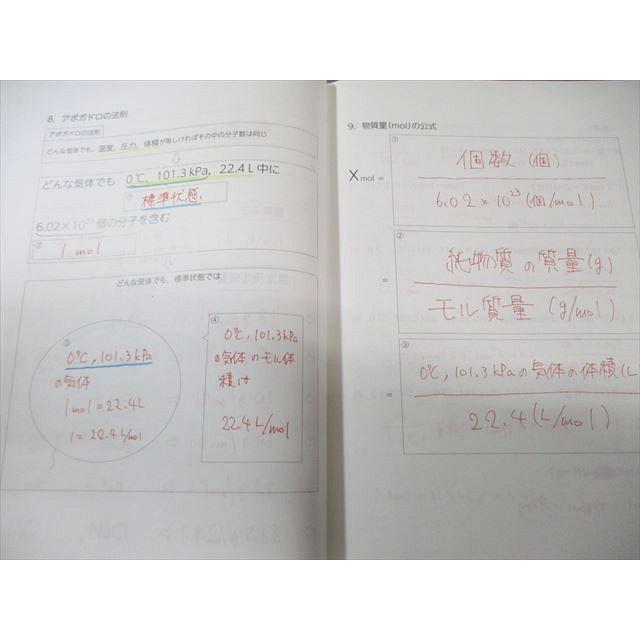 8. アボガドロの法則
アボガドロの法則
どんな気体でも、温度、圧力、体積が等しければその中の分子数は同じ
どんな気体でも 0℃, 101.3kPa, 22.4L中に
① 標準状態.
6.02×10²³個の分子を含む
② 1 mol
どんな気体でも、標準状態では
③
0℃, 101.3kPa
の気体
1mol=22.4L
1=22.4L/mol
④
0℃, 101.3kPa
の気体のモル体
積は
22.4L/mol
9. 物質量(mol)の公式
①
個数 (個)
X mol =
6.02×10²³(個/mol)
②
純物質の質量(g)
=
モル質量 (g/mol)
③
0℃, 101.3kPaの気体の体積(L
=
22.4(L/mol)